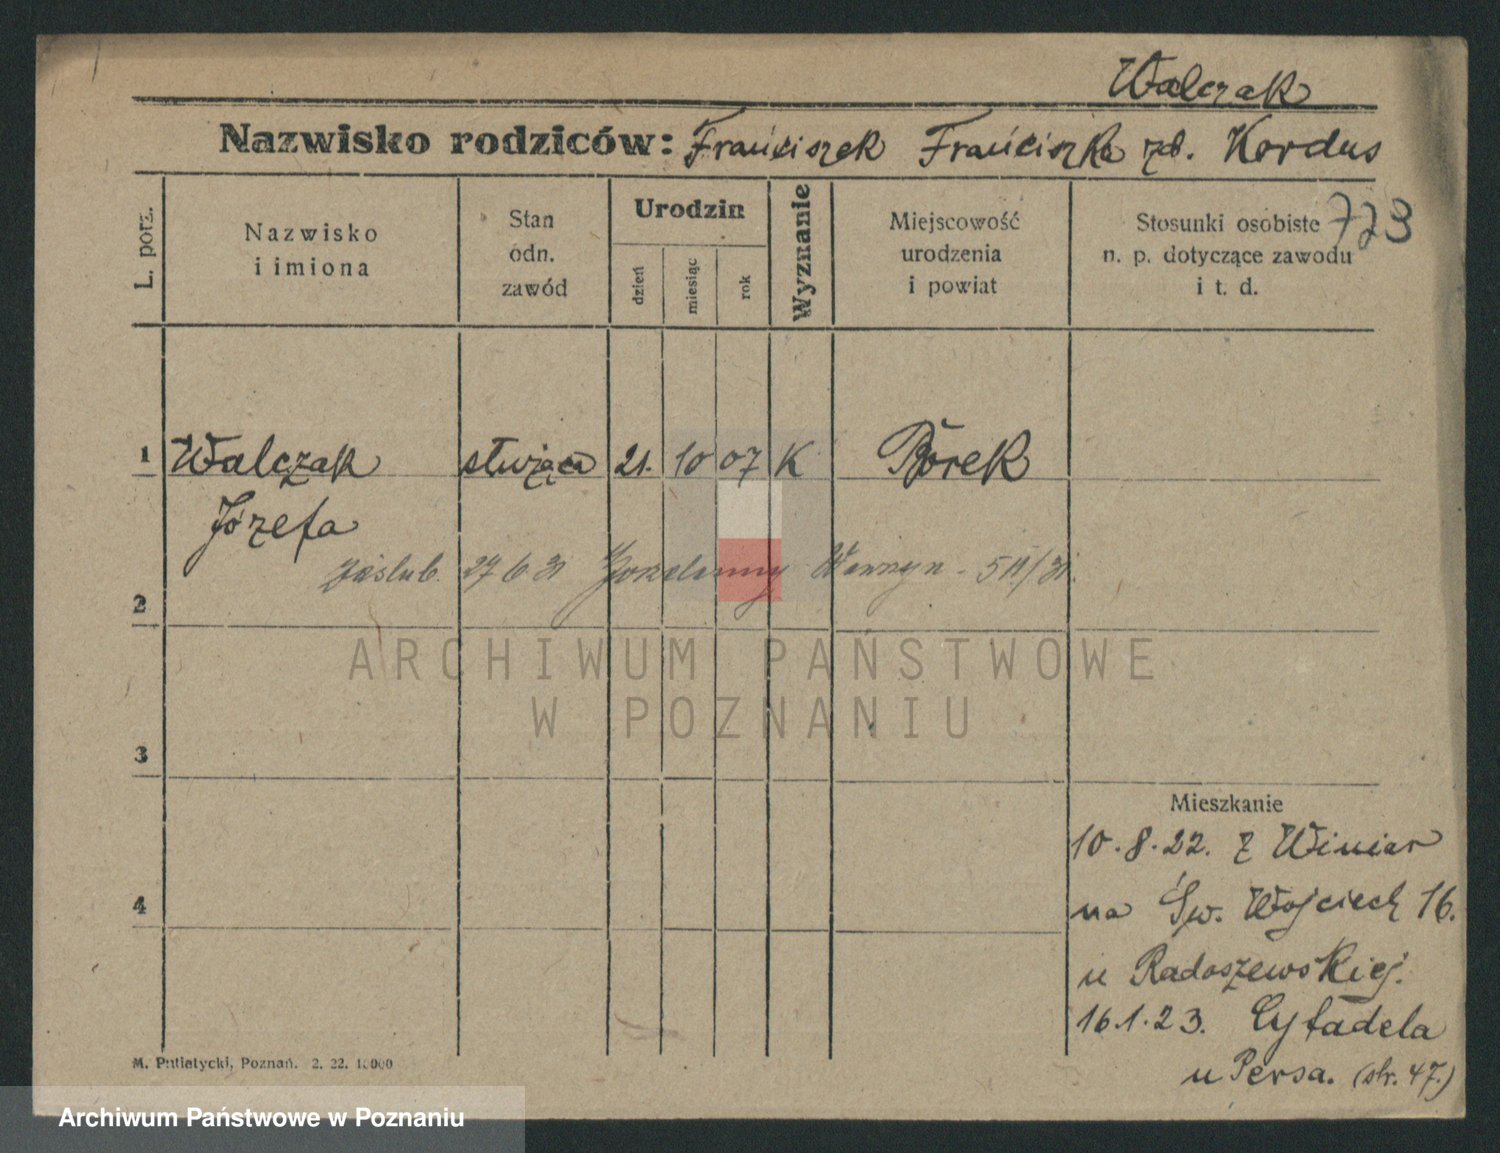 Walczak
Nazwisko rodziców: Franciszek Franciszka zd. Kordus
773
L. porz.
Nazwisko
i imiona
Stan
odn.
zawód
Urodzin
dzień
miesiąc
rok
Wyznanie
Miejscowość
urodzenia
i powiat
Stosunki osobiste
n. p. dotyczące zawodu
i t. d.
1 Walczak służąca 21. 10 07 K Borek
Józefa
zaślub. 27 6 31
2
ARCHIWUM PAŃSTWOWE
W POZNANIU
3
Mieszkanie
10.8.22. z Winiar
4
na Św. Wojciech 16.
u Radoszewskiej.
16.1.23. Cytadela
u Persa. (str. 47.)
M. Putiatycki, Poznań. 2. 22. 10000
Archiwum Państwowe w Poznaniu